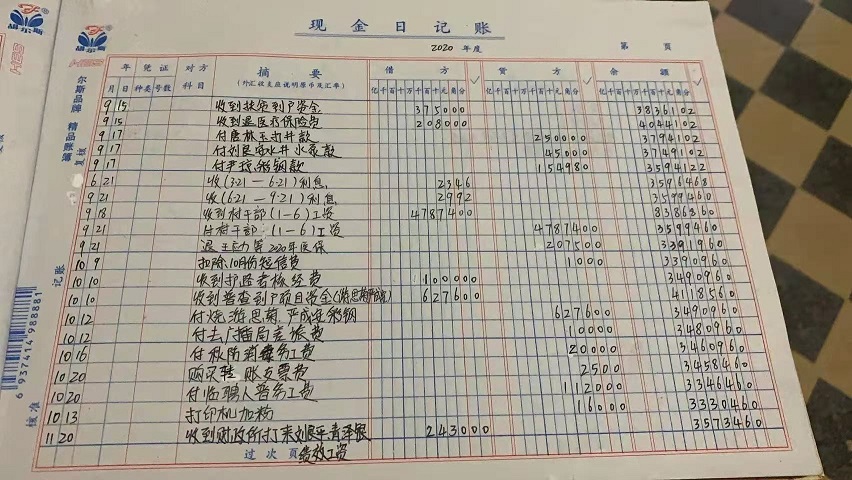 现金日记账
2020 年度 第 页
年 凭证 对方 摘要 借方 贷方 余额
月 日 种类 号数 科目 (外汇收支应说明原币及汇率) 亿千百十万千百十元角分 亿千百十万千百十元角分 亿千百十万千百十元角分
9 15 收到扶贫到户资金 375000 3836102
9 15 收到退医疗保险费 208000 4044102
9 17 付唐林玉打井款 250000 3794102
9 17 付刘良 水井水泵款 45000 3749102
9 17 付尹 彩钢款 154980 3594122
6 21 收(3.21—6.21)利息 2346 3596468
9 21 收(6.21—9.21)利息 2992 3599460
9 18 收到村干部(1—6)工资 4787400 8386860
9 21 付村干部(1—6)工资 4787400 3599460
9 21 退王 等2020年医保 207500 3391960
10 9 扣除10月份短信费 1000 3390960
10 10 收到护路 经费 100000 3490960
10 10 收到普查到户项目资金 627600 4118560
10 12 付 游思菊、严成 彩钢 627600 3490960
10 12 付去广播局差旅费 10000 3480960
10 16 付秋防消毒务工费 20000 3460960
10 20 购买转账支票费 2500 3458460
10 20 付临聘人普务工费 112000 3346460
10 13 打印机加粉 16000 3330460
11 20 收到财政所打来刘良平青泽银 243000 3573460
过次页 绩效工资
胡尔斯
复核
记账
核准
6 937414 988881